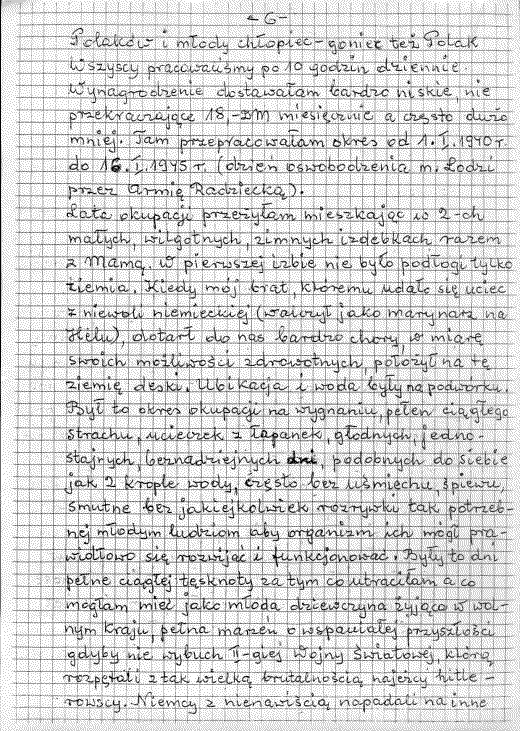 - 6 -
Polaków i młody chłopiec - goniec też Polak
Wszyscy pracowaliśmy po 10 godzin dziennie.
Wynagrodzenie dostawałam bardzo niskie, nie
przekraczające 18,-DM miesięcznie a często dużo
mniej. Tam przepracowałam okres od 1.I.1940r.
do 16.I.1945r. (dzień oswobodzenia m. Łodzi
przez Armię Radziecką).
Lata okupacji przeżyłam mieszkając w 2-ch
małych, wilgotnych, zimnych izdebkach razem
z Mamą. W pierwszej izbie nie było podłogi tylko
ziemia. Kiedy mój brat, któremu udało się uciec
z niewoli niemieckiej (walczył jako marynarz na
Helu), dotarł do nas bardzo chory, w miarę
swoich możliwości zdrowotnych, położył na tę
ziemię deski. Ubikacja i woda były na podwórku.
Był to okres okupacji na wygnaniu, pełen ciągłego
strachu, ucieczek z łapanek, głodnych, jedno-
stajnych, beznadziejnych dni, podobnych do siebie
jak 2 krople wody, często bez uśmiechu, śpiewu,
smutne bez jakiejkolwiek rozrywki tak potrzeb-
nej młodym ludziom aby organizm ich mógł pra-
widłowo się rozwijać i funkcjonować. Były to dni
pełne ciągłej tęsknoty za tym co utraciłam a co
mogłam mieć jako młoda dziewczyna żyjąca w wol-
nym Kraju, pełna marzeń o wspaniałej przyszłości
gdyby nie wybuch II-giej Wojny Światowej, którą
rozpętali z tak wielką brutalnością najeźcy hitle-
rowscy. Niemcy z nienawiścią napadali na inne